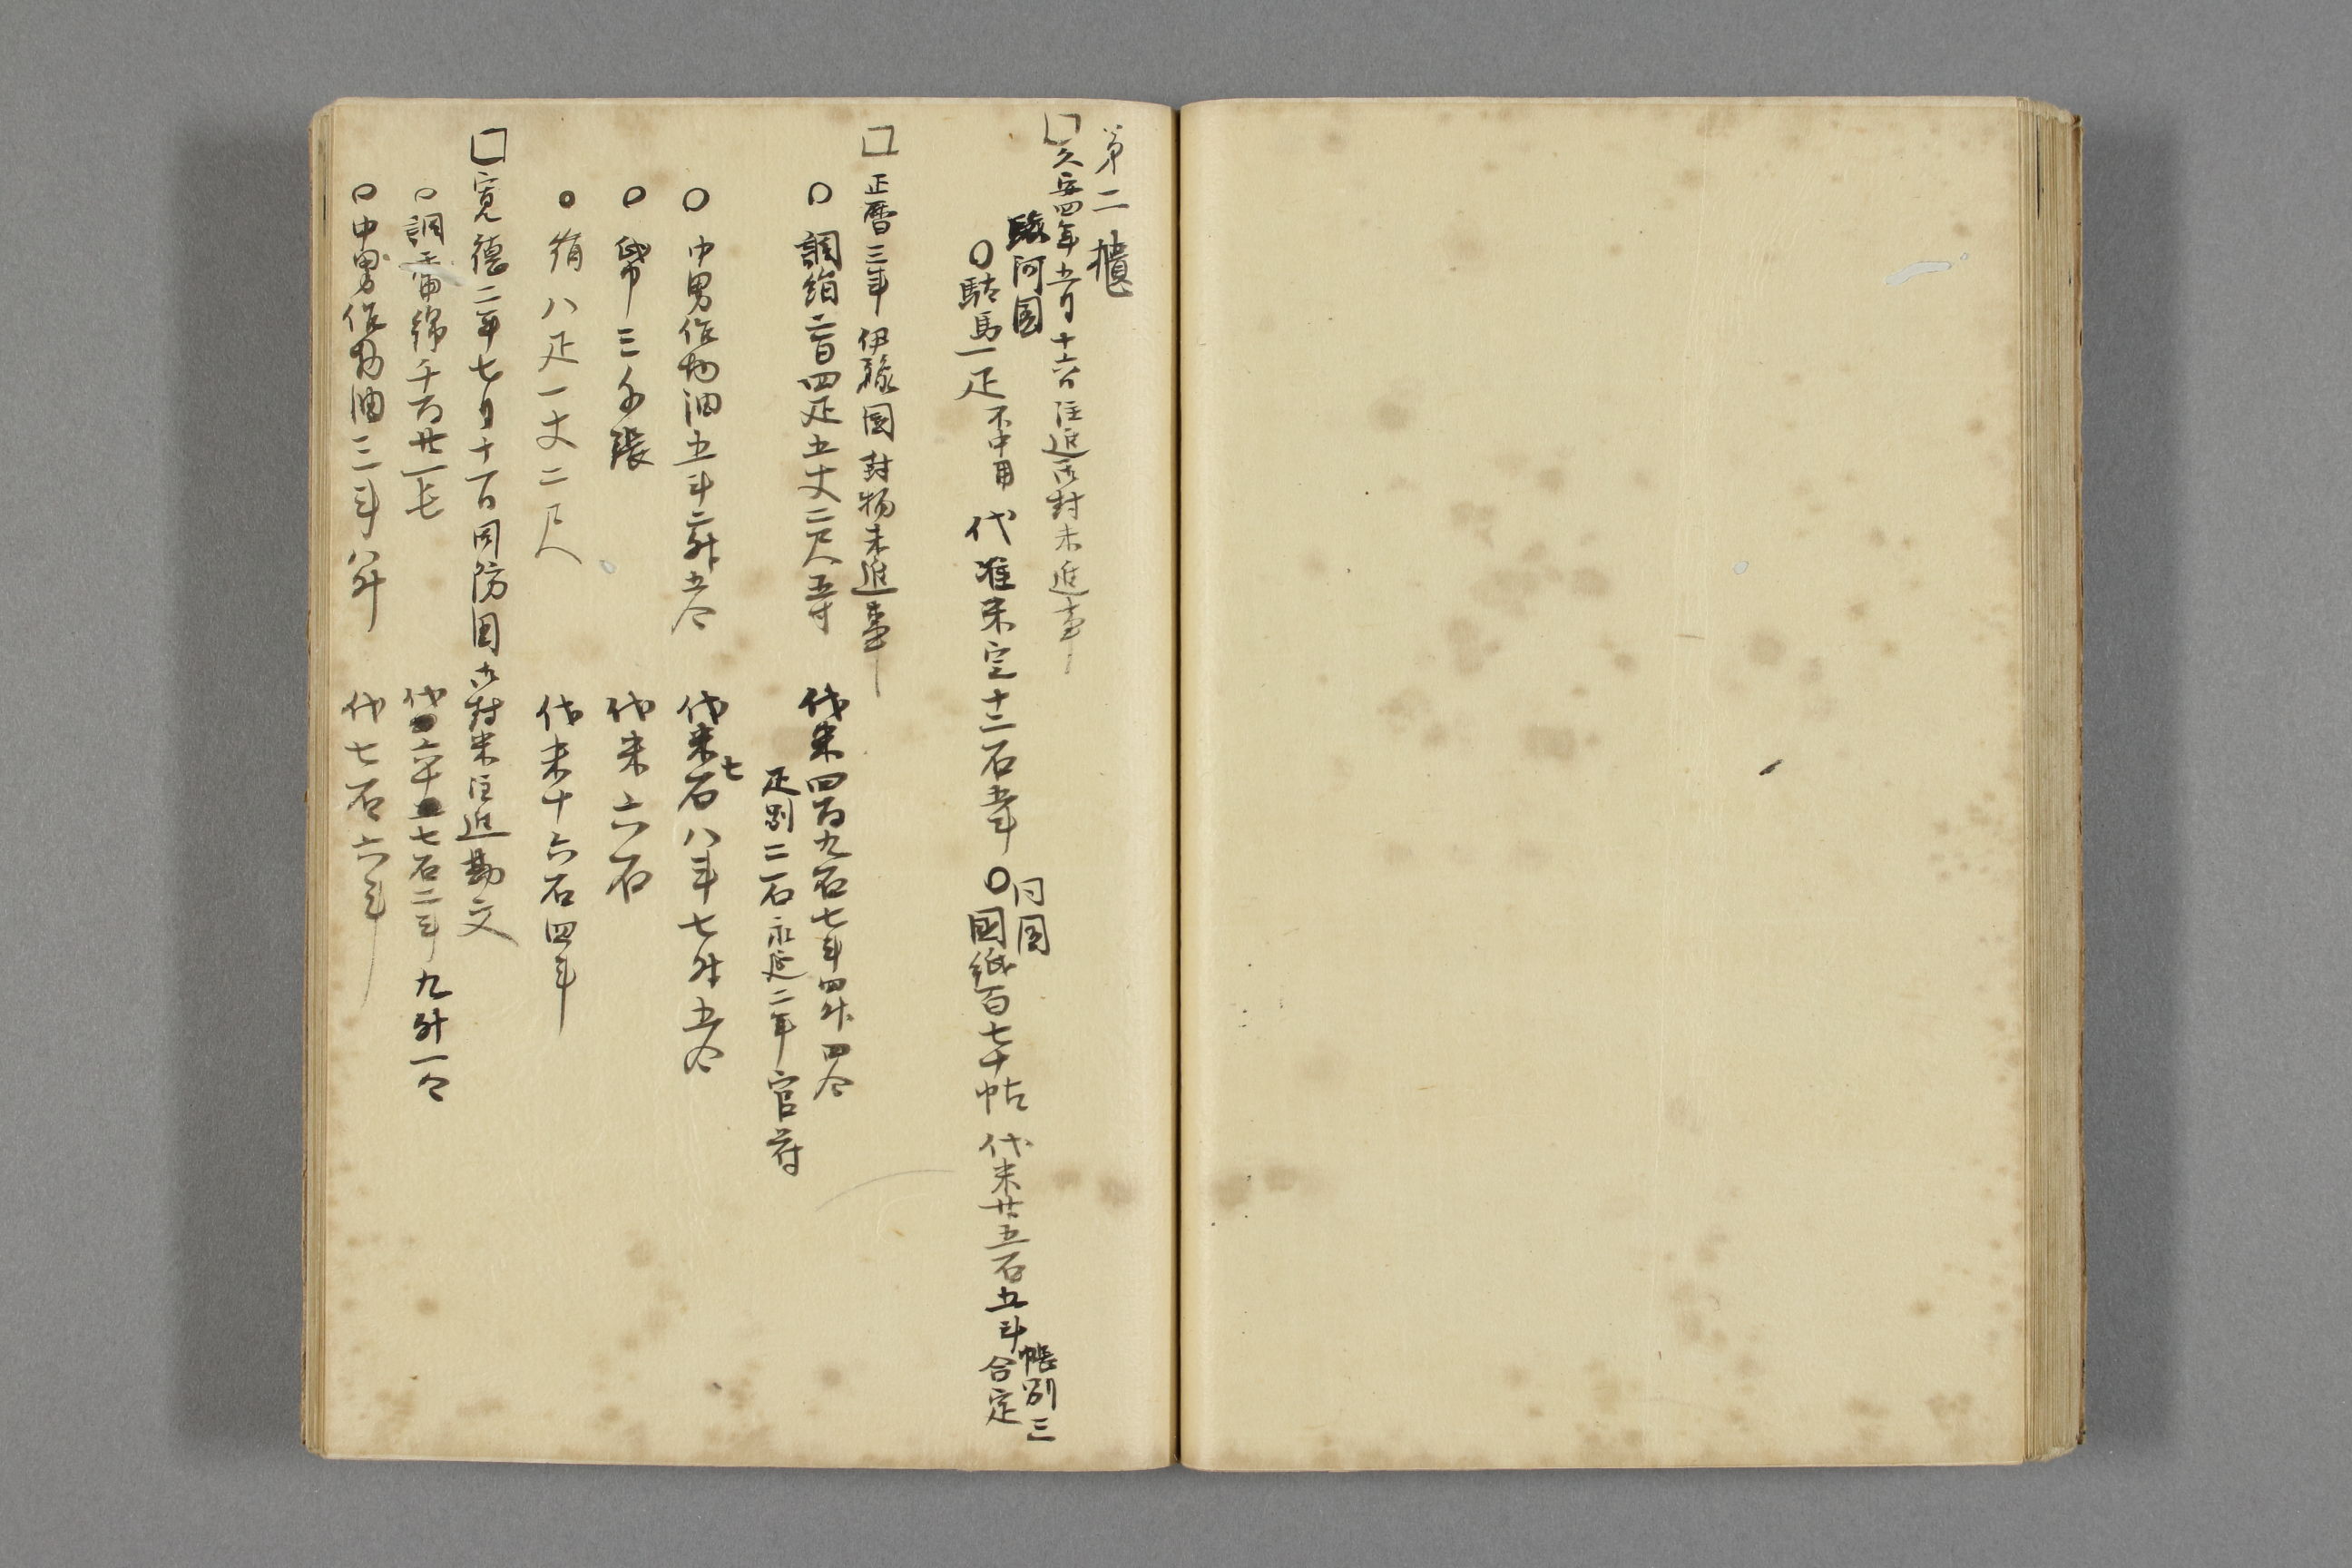 第二櫃
久安四年五月十六日注進御封未進事
駿河国
〇駄馬一疋 不中用 代准米定十二石五斗 〇国紙百七十帖 代米廿五石五斗 合定
同国
帳別三
正暦三年伊豫国封物未進事
〇調絹二百四疋五丈二尺五寸 代米四百九石七斗四升四合
疋別二石 永延二年官符
〇中男作物油五斗二升五合 代米七石八斗七升五合
〇帋三百張 代米六石
〇絹八疋一丈二尺 代米十六石四斗
寛徳二年七月十一日周防国御封米注進勘文
〇調綿千百廿一屯 代六十七石二斗九升一合
〇中男作物油三斗八升 代七石六斗